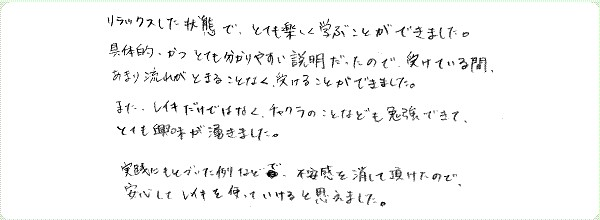 リラックスした状態で、とても楽しく学ぶことができました。
具体的、かつとても分かりやすい説明だったので、受けている間、
あまり流れがとまることなく、受けることができました。
また、レイキだけではなく、チャクラのことなども勉強できて、
とても興味が湧きました。
実践にもとづいた例などで、不安感を消して頂けたので、
安心してレイキを使っていけると思えました。